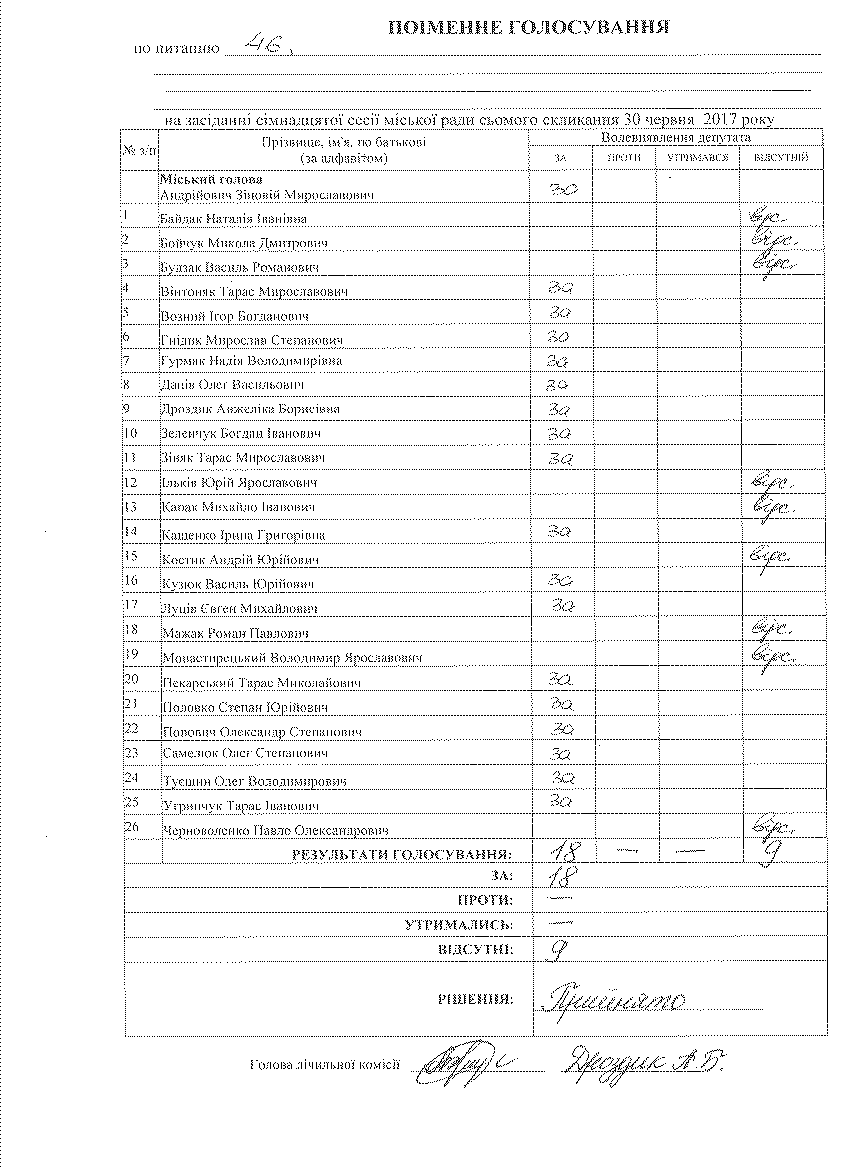 ПОІМЕННЕ ГОЛОСУВАННЯ
по питанню 46.
на засіданні сімнадцятої сесії міської ради сьомого скликання 30 червня 2017 року
№ з/п Прізвище, ім'я, по батькові Волевиявлення депутата
(за алфавітом) ЗА ПРОТИ УТРИМАВСЯ ВІДСУТНІЙ
Міський голова
Андрійович Зіновій Мирославович за
1 Байдак Наталія Іванівна відс.
2 Бойчук Микола Дмитрович відс.
3 Будзак Василь Романович відс.
4 Вінтоняк Тарас Мирославович за
5 Возний Ігор Богданович за
6 Гнідик Мирослав Степанович за
7 Гурмак Надія Володимирівна за
8 Данів Олег Васильович за
9 Дроздик Анжеліка Борисівна за
10 Зеленчук Богдан Іванович за
11 Зіняк Тарас Мирославович за
12 Ільків Юрій Ярославович відс.
13 Капак Михайло Іванович відс.
14 Кащенко Ірина Григорівна за
15 Костик Андрій Юрійович відс.
16 Кузюк Василь Юрійович за
17 Луців Євген Михайлович за
18 Мажак Роман Павлович відс.
19 Монастирецький Володимир Ярославович відс.
20 Пекарський Тарас Миколайович за
21 Половко Степан Юрійович за
22 Попович Олександр Степанович за
23 Самелюк Олег Степанович за
24 Туєшин Олег Володимирович за
25 Угринчук Тарас Іванович за
26 Черноволенко Павло Олександрович відс.
РЕЗУЛЬТАТИ ГОЛОСУВАННЯ: 18 — — 9
ЗА: 18
ПРОТИ: —
УТРИМАЛИСЬ: —
ВІДСУТНІ: 9
РІШЕННЯ: Прийнято
Голова лічильної комісії Дроздик А.Б.